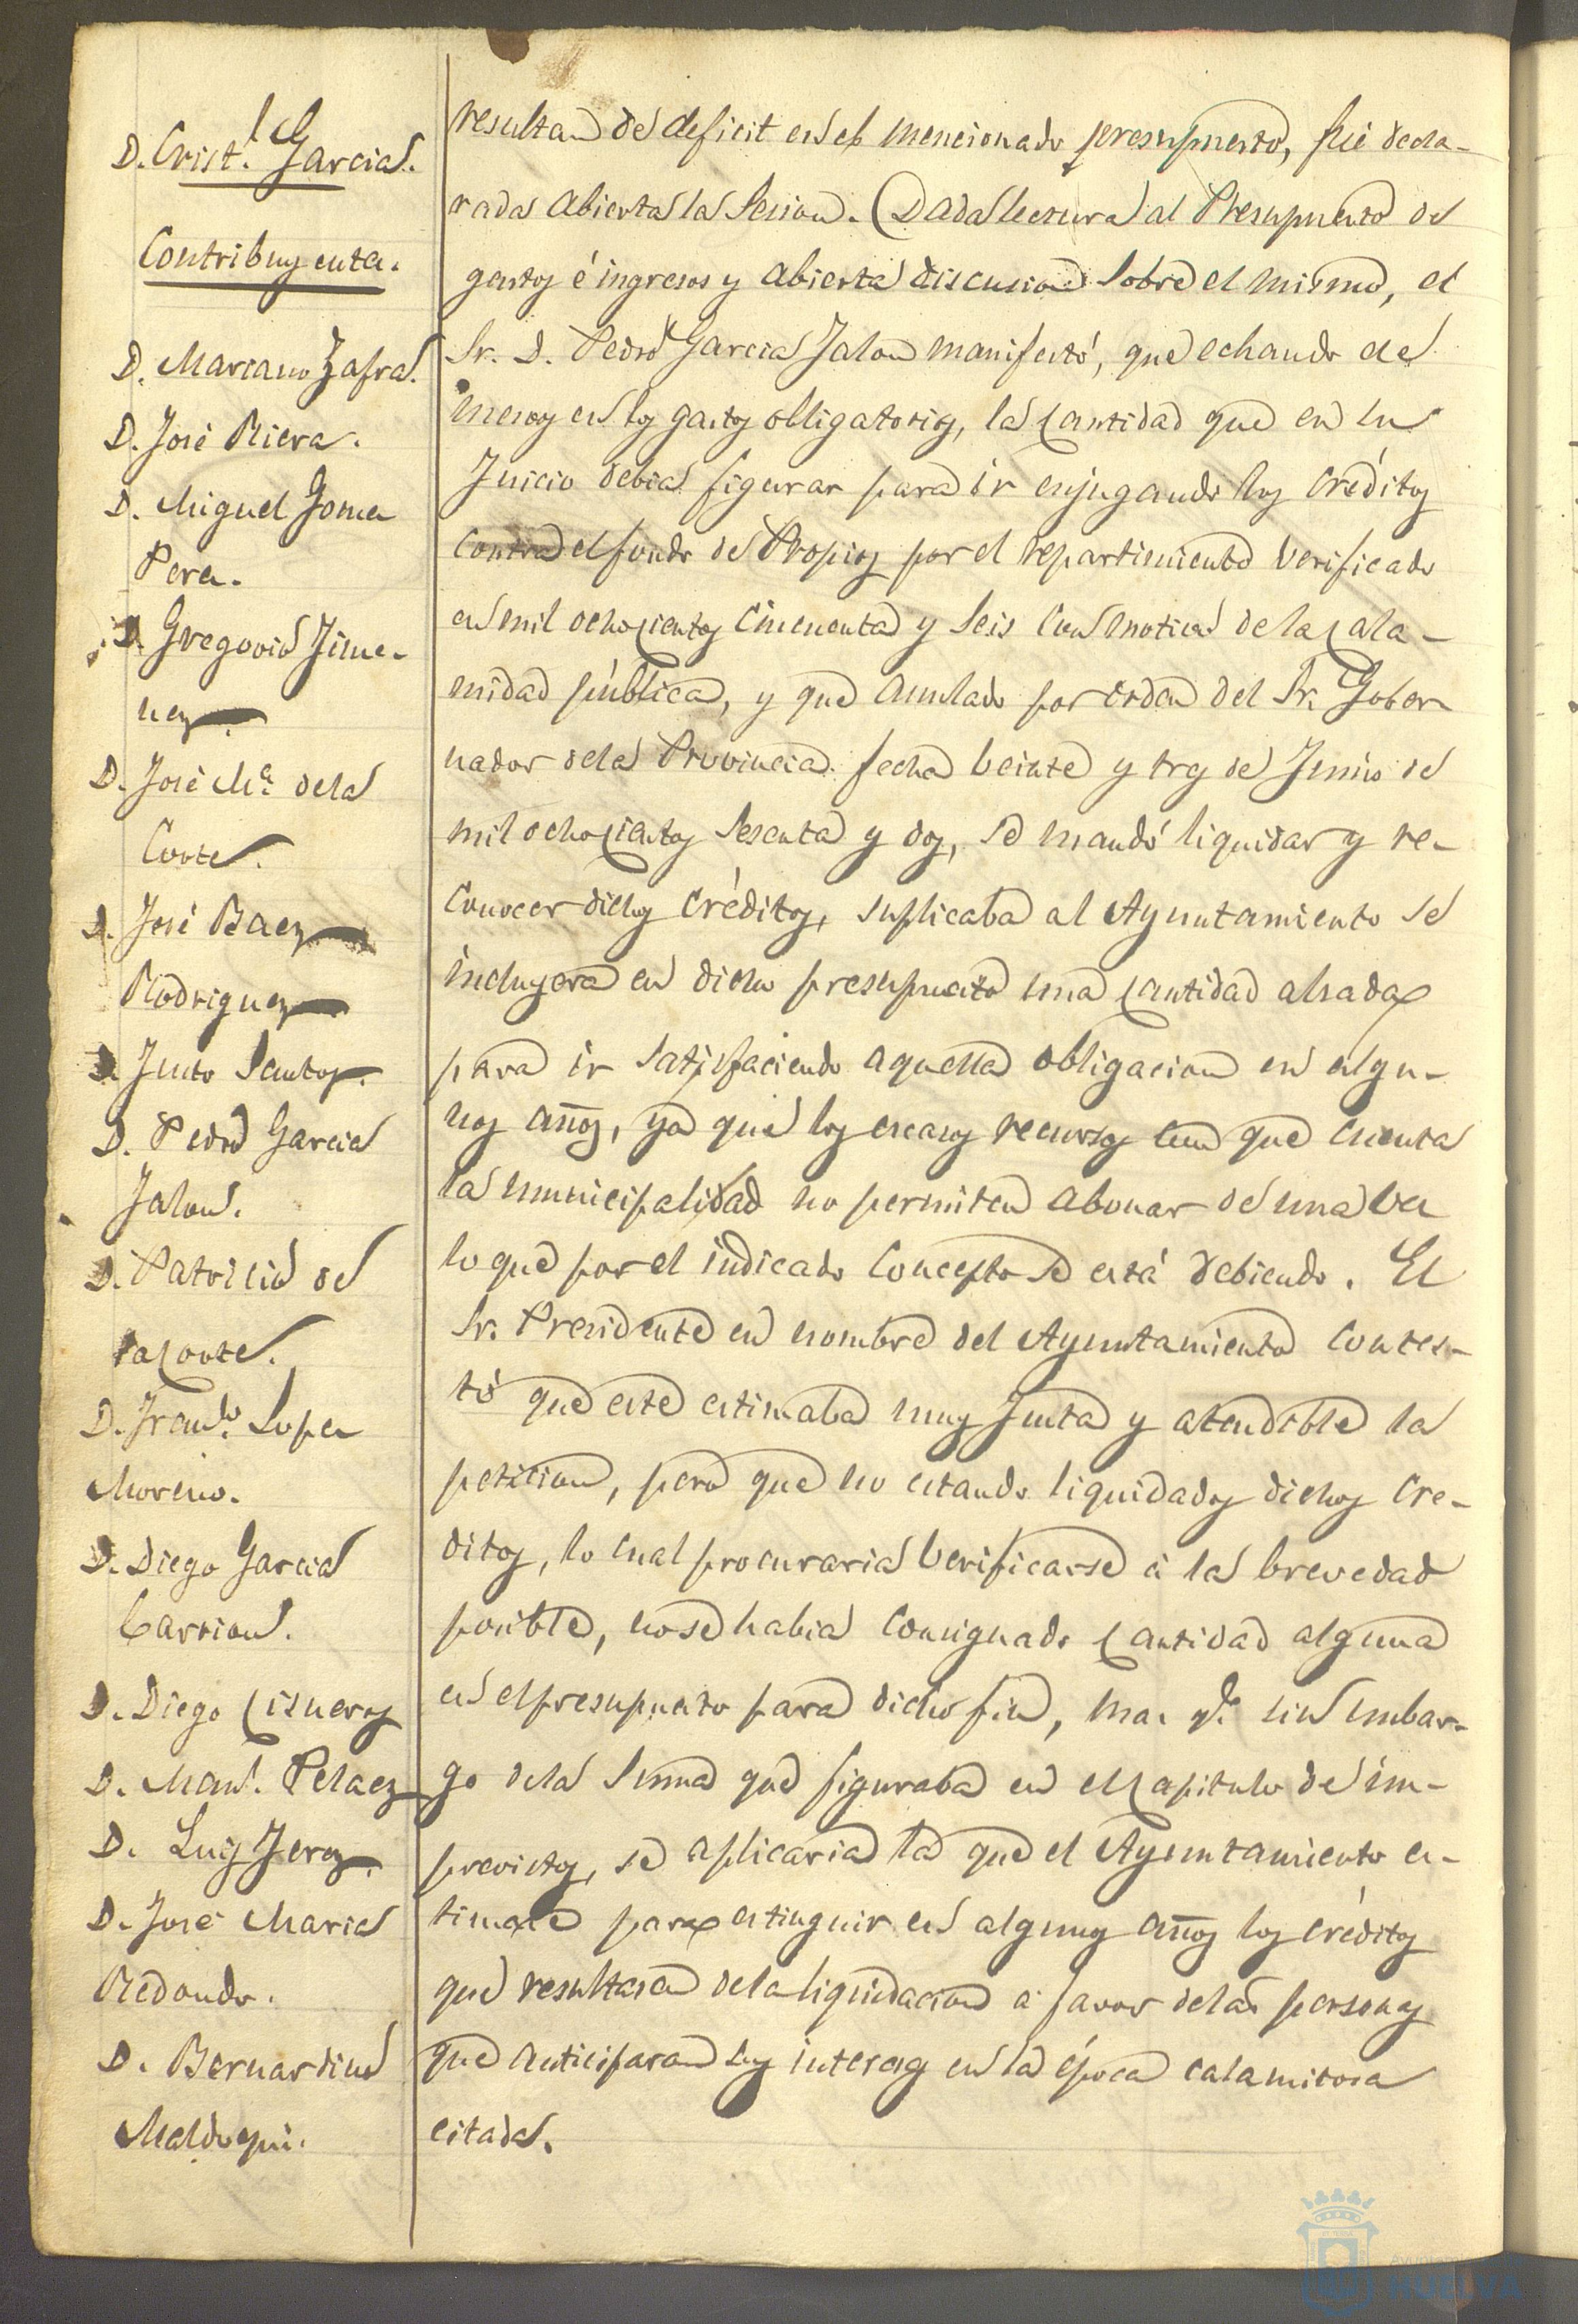 D. Crist.l Garcia.
Contribuyentes.
D. Mariano Zafra.
D. José Riera.
D. Miguel Gomez
Perez.
D. Gregorio Jime-
nez.
D. José M.a de la
Corte.
D. José Baez
Rodriguez
D. Justo Santos.
D. Pedro Garcia
Jalon.
D. Patricio de
la Corte.
D. Fran.co Lopez
Moreno.
D. Diego Garcia
Carrion.
D. Diego Cisneros
D. Man.l Pelaez
D. Luis Jerez.
D. José Maria
Redondo.
D. Bernardino
resultan de deficit en el mencionado presupuesto, fué decla-
rada abierta la Sesion. Dada lectura al Presupuesto de
gastos é ingresos y abierta discusion sobre el mismo, el
Sr. D. Pedro Garcia Jalon manifestó, que echando de
menos en los gastos obligatorios, la cantidad que en su
Juicio debia figurar para ir enjugando los créditos
contra el fondo de Propios por el repartimiento verificado
en mil ochocientos cincuenta y seis con motivo de la cala-
midad pública, y que anulado por orden del Sr. Gober-
nador de la Provincia fecha veinte y tres de Junio de
mil ochocientos sesenta y dos, se mandó liquidar y re-
conocer dichos créditos, suplicaba al Ayuntamiento se
incluyera en dicho presupuesto una cantidad alsada
para ir satisfaciendo aquella obligacion en algu-
nos años, ya que los escasos recursos con que cuenta
la municipalidad no permiten abonar de una vez
lo que por el indicado concepto se está debiendo. El
Sr. Presidente en nombre del Ayuntamiento contes-
tó que este estimaba muy Justa y atendible la
peticion, pero que no estando liquidados dichos cre-
ditos, lo cual procuraria verificarse á la brevedad
posible, no se habia consignado cantidad alguna
en el presupuesto para dicho fin, mas q.e sin embar-
go de la suma que figuraba en el capitulo de im-
previstos, se aplicaria la que el Ayuntamiento es-
timase para estinguir en algunos años los créditos
que resultasen de la liquidacion á favor de las personas
que anticiparon sus intereses en la época calamitosa
citada.
HUELVA